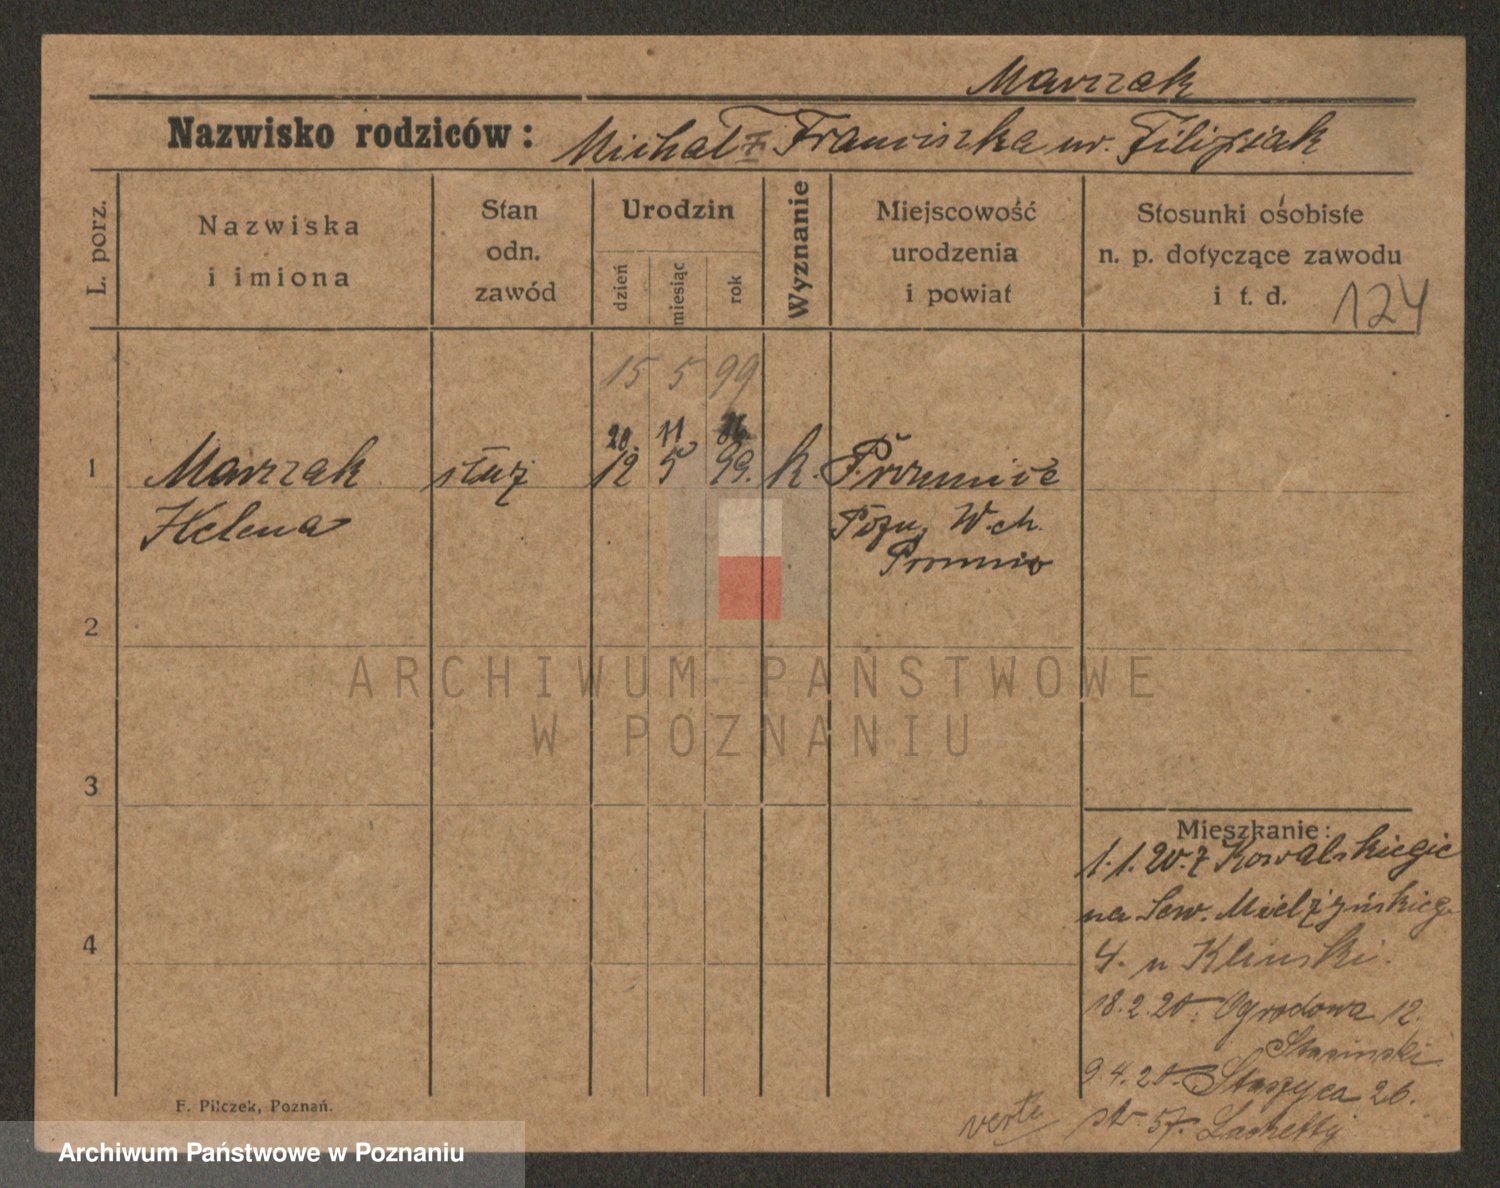 Marszak
Nazwisko rodziców: Michał z Franciszka ur. Filipiak
L. porz.
Nazwiska
i imiona
Stan
odn.
zawód
Urodzin
dzień
miesiąc
rok
Wyznanie
Miejscowość
urodzenia
i powiat
Stosunki osobiste
n. p. dotyczące zawodu
i t. d.
124
15 5 99
20. 11
1 Marszak służ 12 5 99. k.
Helena W.ch.
2
3
4
ARCHIWUM PAŃSTWOWE
W POZNANIU
Mieszkanie:
1.1.20. z Kowalskiego
na Sew. Mielżyńskieg
4. u Klinski.
18.2.20. Ogrodowa 12.
Stasinski
9.4.20. Staszyca 26.
str. 57.
verte
F. Pilczek, Poznań.
Archiwum Państwowe w Poznaniu